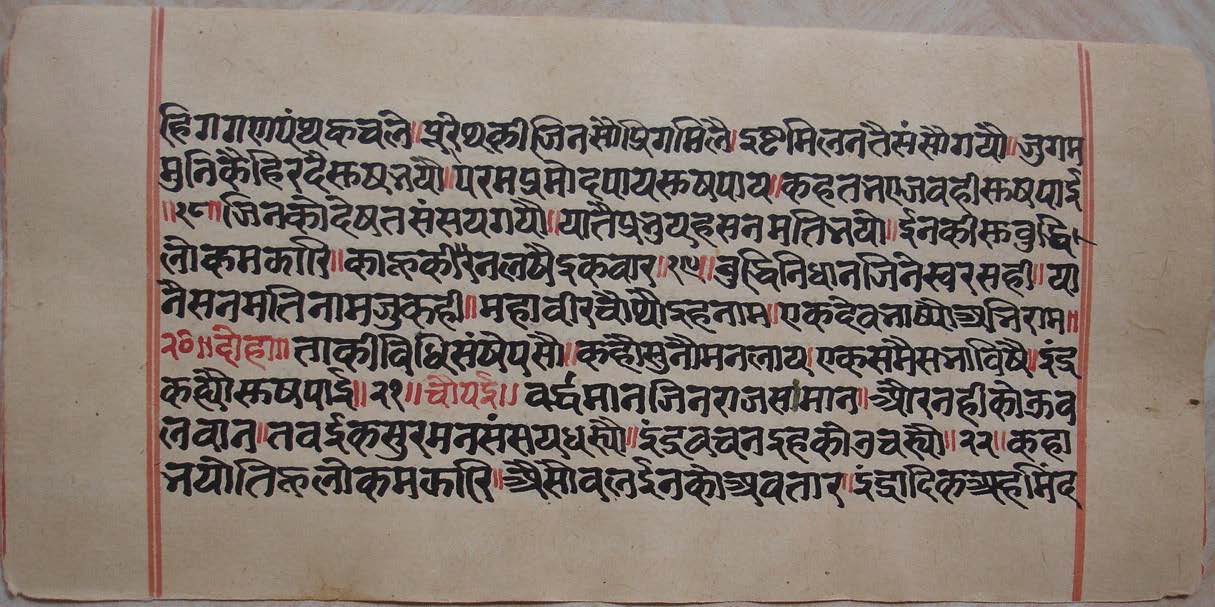 हि गगणपंथ कचलै॥ पूरैथकी जिनसौ प्रिग मिलै। इष्ट मिलनतै संसौ गयौ॥ जुगम
मुनिकै हिरदै सुष भयौ॥ परम प्रमोद पाय सुष पाय॥ कहत भए जब ही सुष पाई
॥१८॥ जिनकौ देषत संसय गयौ॥ यातै प्रभु यह सनमति भयौ॥ ईनकी सुबुद्धि
लोकमकारि॥ काहुकी रैन लषै इकवार॥१९॥ बुद्धिनिधान जिनेस्वर सही॥ या
नै सनमति नाम जु कही॥ महावीर चौथौ इह नाम॥ एक देव भाष्यौ अभिराम॥
२०॥ दोहा॥ ताकी विधि संषेपसौ॥ कहौ सुनौ मन लाय। एक समै सभा विषै॥ इंद्र
कह्यौ सुष पाई॥ २१॥ चौपई॥ वर्द्धमान जिनराज समान॥ और नही कोऊ व
लवान॥ तव ईक सुर मन संसय धस्यौ॥ इंद्र वचन इह की उचस्यौ॥ २२॥ कहा
भयौ तिहु लोकमकारि॥ अैसौ वल ईनको अवतार॥ इंद्रादिक अहमिंद